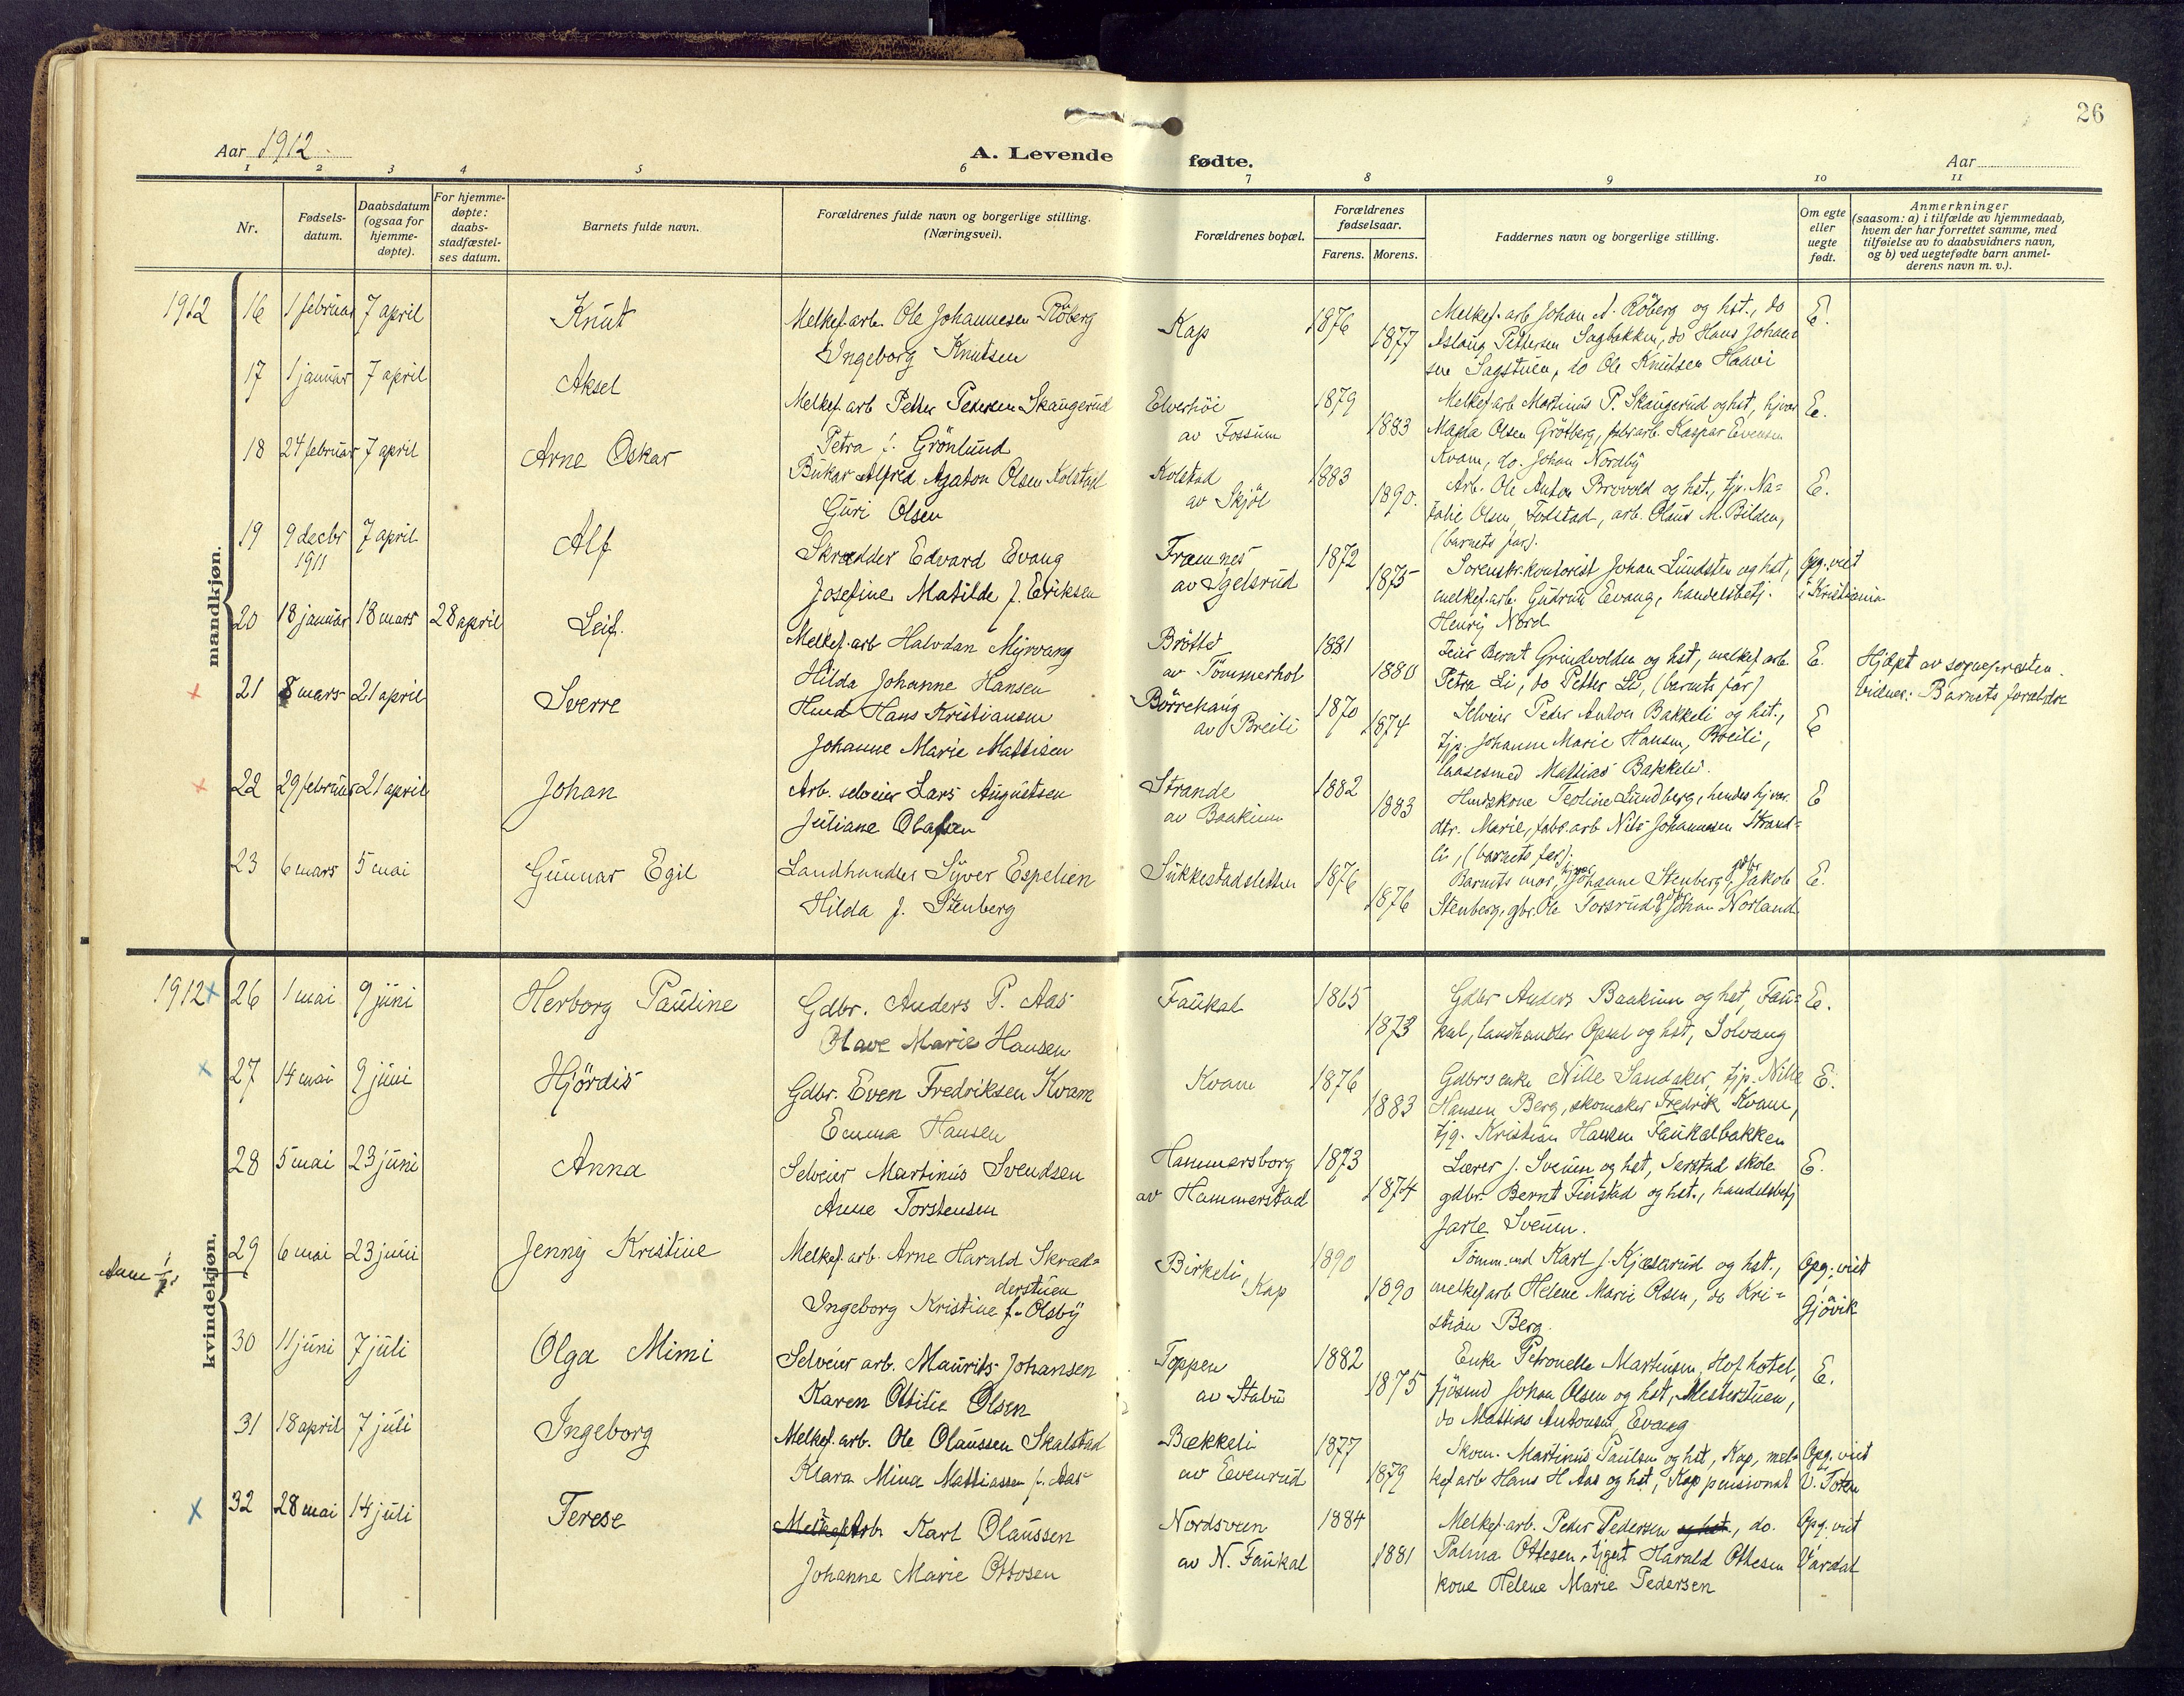 26
Aar 1912.
A. Levende fødte.
Aar
1 2 3 4 5 6 7 8 9 10 11
Nr.
Fødsels-
datum.
Daabsdatum
(ogsaa for
hjemme-
døpte).
For hjemme-
døpte:
daabs-
stadfæstel-
ses datum.
Barnets fulde navn.
Forældrenes fulde navn og borgerlige stilling.
(Næringsvei).
Forældrenes bopæl.
Forældrenes
fødselsaar.
Farens. Morens.
Faddernes navn og borgerlige stilling.
Om egte
eller
uegte
født.
Anmerkninger
(saasom: a) i tilfælde av hjemmedaab,
hvem der har forrettet samme, med
tilføielse av to daabsvidners navn,
og b) ved uegtefødte barn anmel-
derens navn m. v.).
mandkjøn.
1912 16 1 februar 7 april Knut
Melkef.arb. Ole Johannesen Røberg
Ingeborg Knutsen
Kap 1876 1877
Melkef. arb Johan A. Røberg og hst., do
Aslaug Pettersen Sagbakken, do Hans Johan-
sen Sagstuen, do Ole Knutsen Haavi
E.
17 1 januar 7 april Aksel
Melkef. arb Petter Pedersen Skaugerud
Petra f. Grönlund
Elverhöi
av Fossum
1879 1883
Melkef. arb Martinus P. Skaugerud og hst, hjvær
Magda Olsen Grötberg, fabr.arb. Kaspar Evensen
Kvam, do. Johan Nordby
E.
18 24 februar 7 april Arne Oskar
Bakar Alfred Agaton Olsen Kolstad
Guri Olsen
Kolstad
av Skjöl
1883 1890.
Arb. Ole Anton Brovold og hst., tjp. Na=
talie Olsen, Fodstad, arb. Olaus M. Bilden,
(barnets far).
E.
19 9 decbr 1911 7 april Alf
Skrædder Edvard Evang
Josefine Matilde f. Eriksen
Framnes
av Igelsrud
1872 1875
Sorenskr.kontorist Johan Lundsten og hst,
melkef.arb. Gudrun Evang, handelsbetj.
Henry Nord
Opg. viet
i Kristiania
20 18 januar 13 mars 28 april Leif.
Melkef. arb Halvdan Myrvang
Hilda Johanne Hansen
Bröttet
av Tömmerhol
1881 1880
Leier Bernt Grindvolden og hst, melkef arb
Petra Li, do Petter Li, (barnets far)
E.
Hjdøpt av sognepresten.
Vidner: Barnets forældre
21 8 mars 21 april Sverre
Husd Hans Kristiansen
Johanne Marie Mattisen
Börrehaug
av Breili
1870 1874
Selveier Peder Anton Bakkeli og hst.,
tjp. Johanne Marie Hansen, Breili,
laasesmed Mattias Bakkeli.
E
22 29 februar 21 april Johan
Arb. selveier Lars Augustsen
Juliane Olafsen
Strande
av Baakinn
1882 1883
Husdskone Teoline Lundberg, hendes hj.vær.
dtr. Marie, fabr.arb Nils Johannesen Strand-
li, (barnets far).
E
23 6 mars 5 mai Gunnar Egil
Landhandler Syver Espelien
Hilda f. Stenberg
Sukkestadsletten 1876 1876
Barnets mor, hjvær Johanne Stenberg, gdbr Jakob
Stenberg, gbr. Ole Sorsrud, Johan Norland
E.
kvindekjøn.
1912 x 26 1 mai 9 juni Herborg Pauline
Gdbr. Anders P. Aas
Olave Marie Hansen
Faukal 1865 1873
Gdbr Anders Baakinn og hst, Fau=
kal, landhandler Opsal og hst, Solvang
E.
x 27 14 mai 9 juni Hjördis
Gdbr. Even Fredriksen Kvam
Emma Hansen
Kvam 1876 1883
Gdbrs enke Nille Sandaker, tjp. Nille
Hansen Berg, skomaker Fredrik Kvam,
tjg. Kristian Hansen Faukalbakken
E.
28 5 mai 23 juni Anna
Selveier Martinus Svendsen
Anne Torstensen
Hammersborg
av Hammerstad
1873 1874
Lærer J. Sveum og hst, Serstad skole
gdbr. Bernt Finstad og hst., handelsbetj
Jarle Sveum.
E.
29 6 mai 23 juni Jenny Kristine
Melkef. arb. Arne Harald Skræd=
derstuen
Ingeborg Kristine f. Olsby
Birkeli,
Kap
1890 1890
Tömm.md Karl J. Kjæserud og hst.,
melkef arb Helene Marie Olsen, do Kri=
stian Berg.
Opg. viet
i
Gjövik
30 11 juni 7 juli Olga Mimi
Selveier arb. Maurits Johansen
Karen Ottilie Olsen
Toppen
av Stabu
1882 1875
Enke Petronelle Martinsen, Hof hotel,
fjösmd Johan Olsen og hst, Mesterstuen,
do Mattias Antonsen, Evang
E.
31 18 april 7 juli Ingeborg
Melkef. arb. Ole Olaussen Skalstad
Klara Mina Mattiassen f. Aas
Bækkeli
av Evenrud
1877 1879
Skom. Martinus Paulsen og hst, Kap, mel-
kef arb Hans H Aas og hst, Kap pensionat
Opg. viet
V. Toten
x 32 28 mai 14 juli Terese
Melkef Arb. Karl Olaussen
Johanne Marie Ottosen
Nordsveen
av N. Faukal
1884 1881
Melkef. arb. Peder Pedersen og hst., do.
Palma Ottesen, tjgut Harald Ottesen
kone Helene Marie Pedersen
Opg. viet
i
Vardal